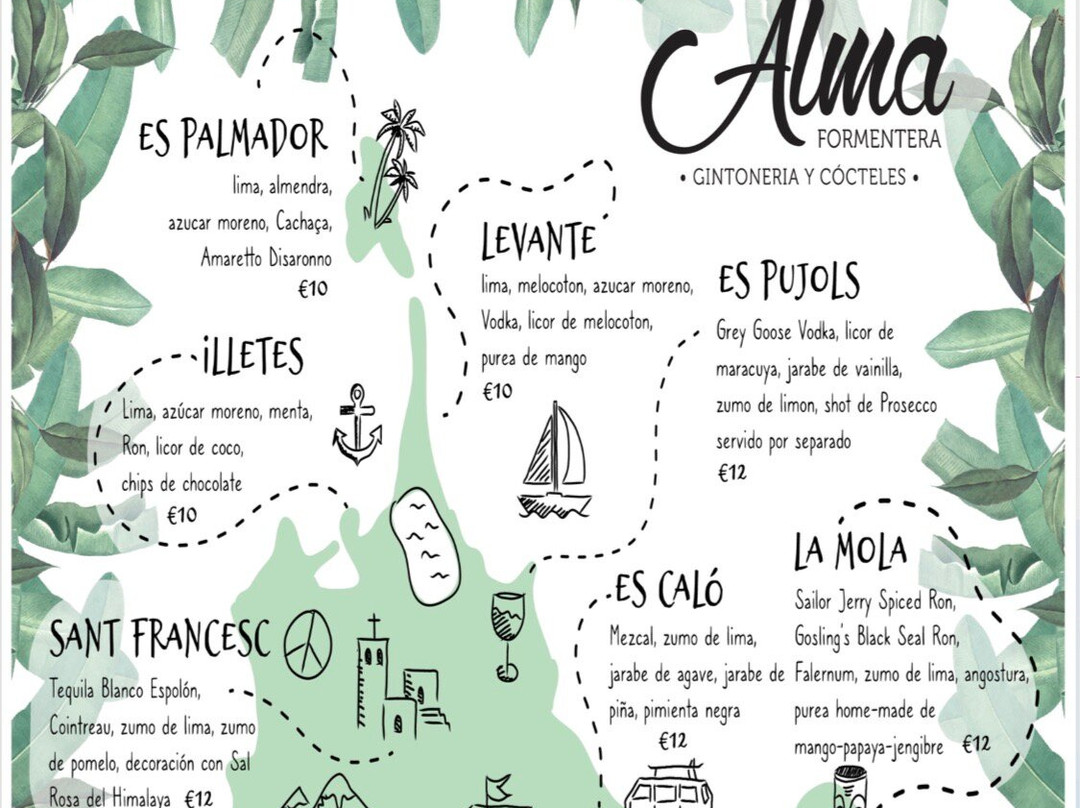 Alma
FORMENTERA
• GINTONERIA Y CÓCTELES •
ES PALMADOR
lima, almendra,
azucar moreno, Cachaça,
Amaretto Disaronno
€10
LEVANTE
lima, melocoton, azucar moreno,
Vodka, licor de melocoton,
purea de mango
€10
ES PUJOLS
Grey Goose Vodka, licor de
maracuya, jarabe de vainilla,
zumo de limon, shot de Prosecco
servido por separado
€12
iLLETES
Lima, azúcar moreno, menta,
Ron, licor de coco,
chips de chocolate
€10
SANT FRANCESC
Tequila Blanco Espolón,
Cointreau, zumo de lima, zumo
de pomelo, decoración con Sal
Rosa del Himalaya €12
ES CALÓ
Mezcal, zumo de lima,
jarabe de agave, jarabe de
piña, pimienta negra
€12
LA MOLA
Sailor Jerry Spiced Ron,
Gosling's Black Seal Ron,
Falernum, zumo de lima, angostura,
purea home-made de
mango-papaya-jengibre €12